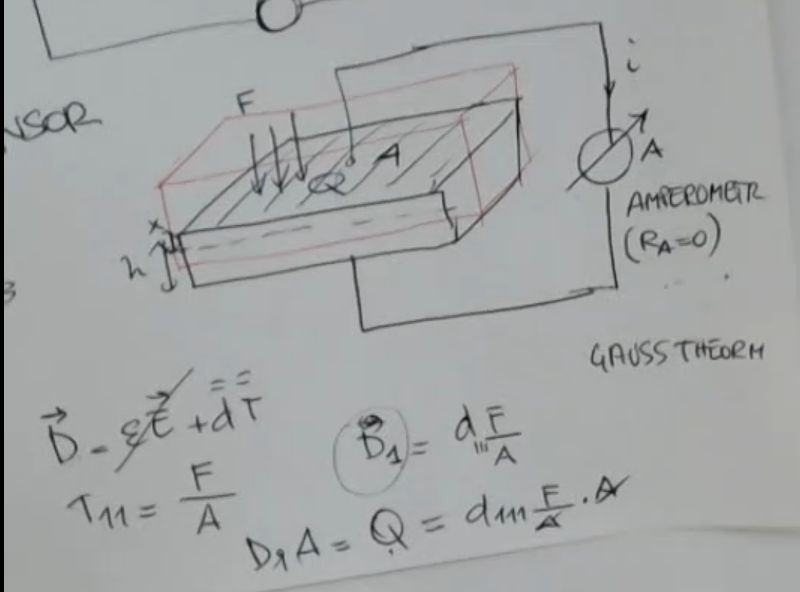 NSOR
F
i
A
Q
A
AMPEROMETR
(R_A=0)
x
h
GAUSS THEORM
D⃗ = εE⃗ + d̿ T̿
D⃗₁ = d₁₁₁ F/A
T₁₁ = F/A
D₁A = Q = d₁₁₁ F/A · A